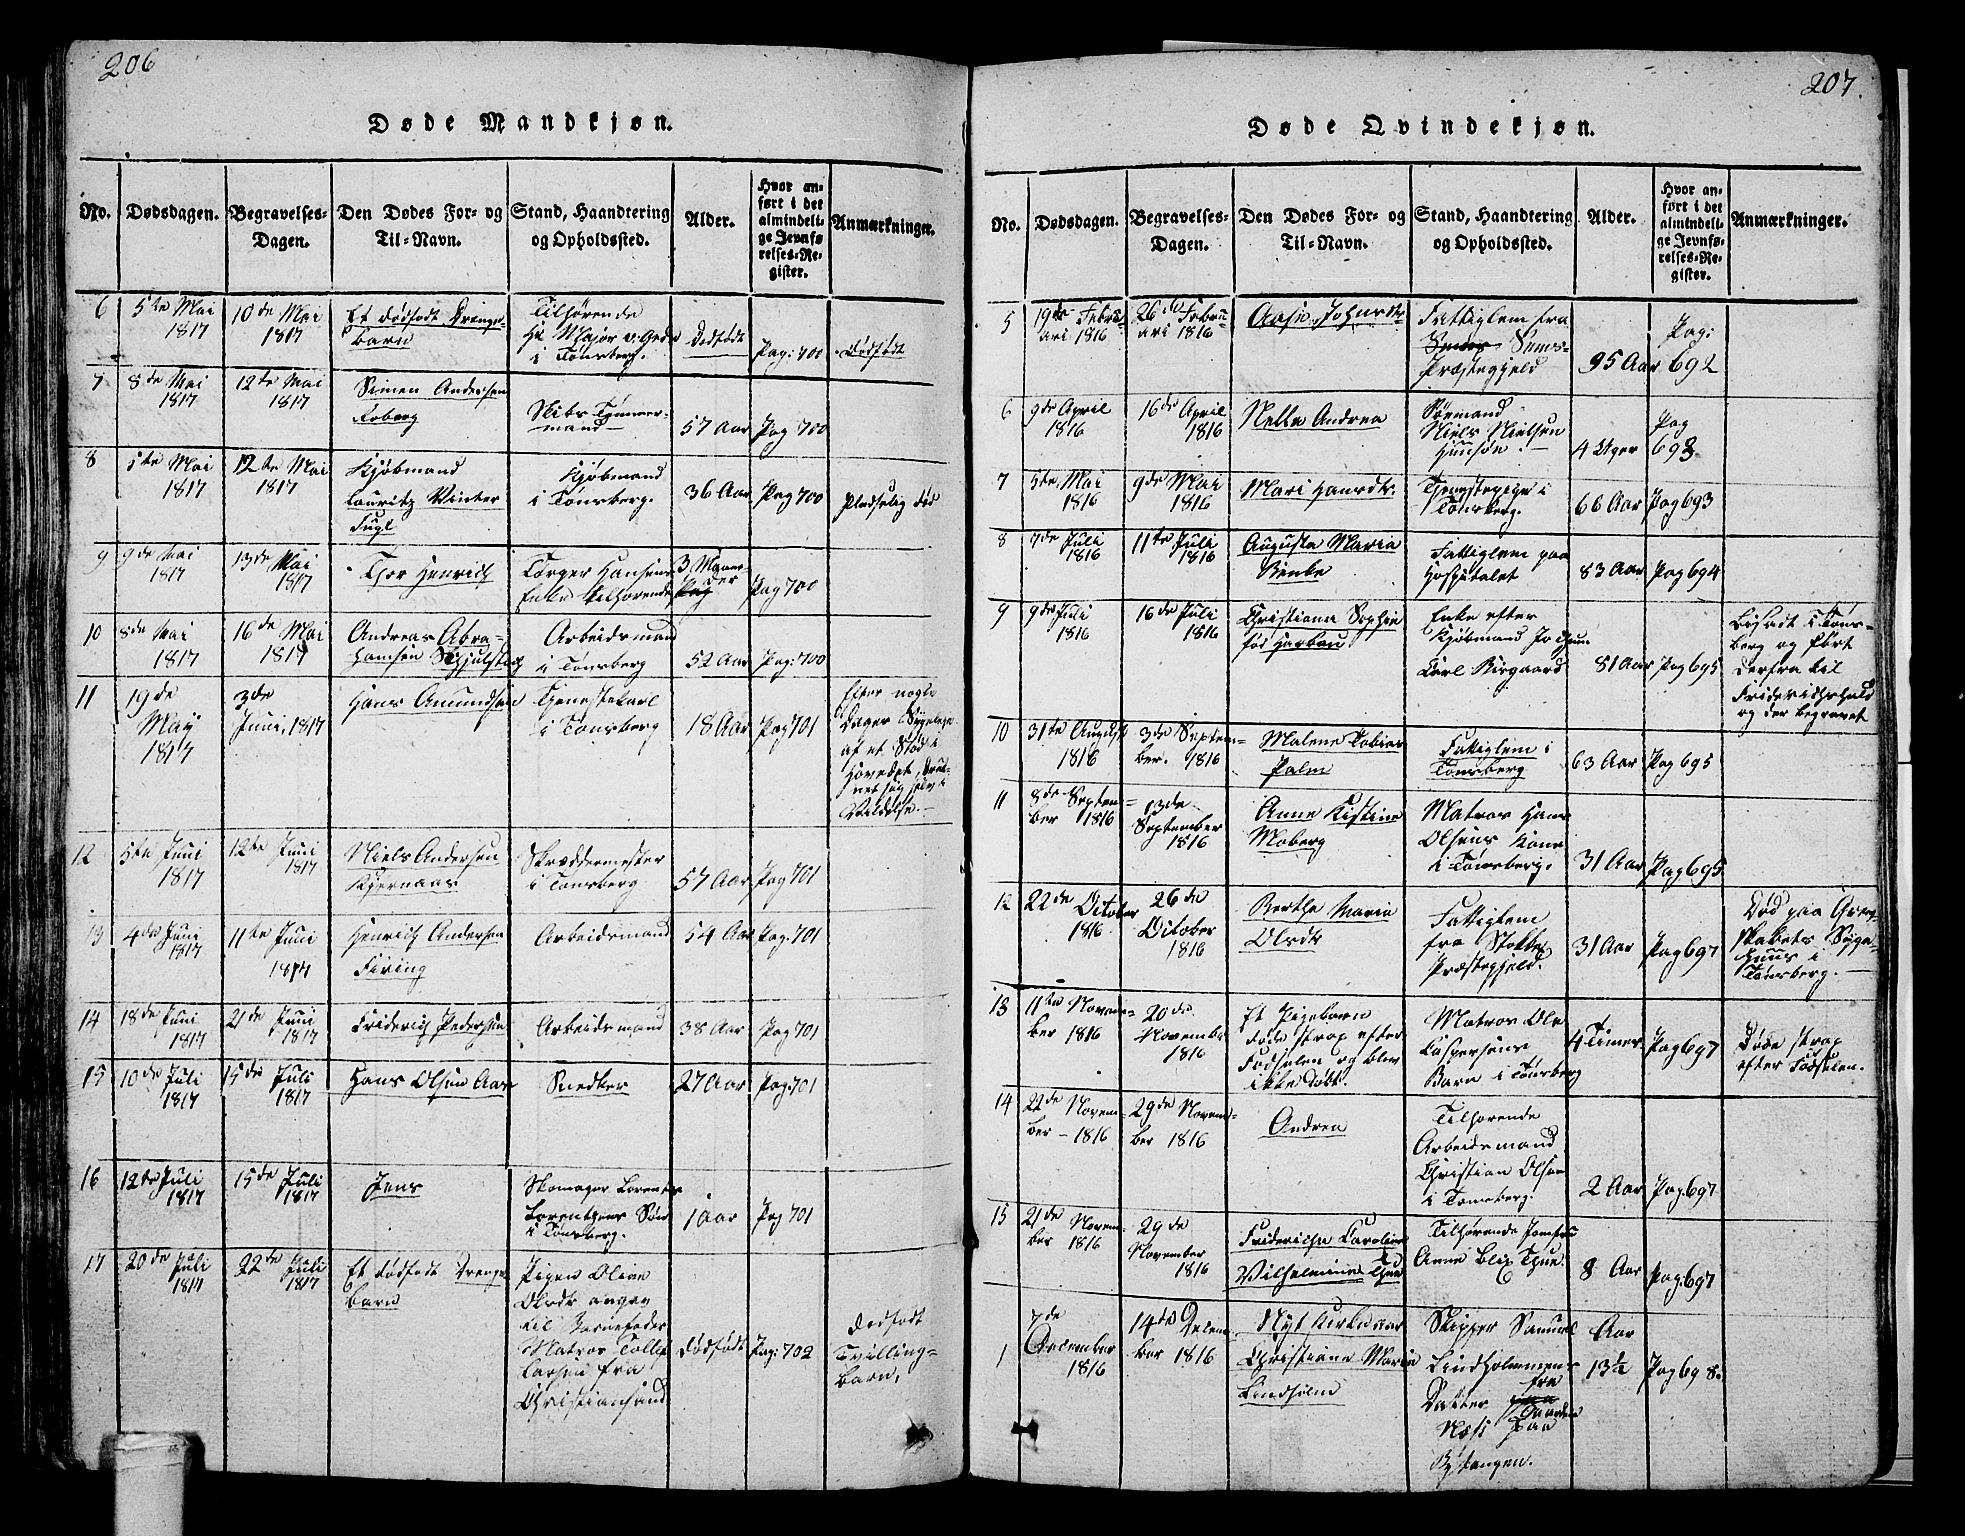 206
Døde Mandkjøn.
No.
Dødsdagen.
Begravelses-
Dagen.
Den Dødes For- og
Til-Navn.
Stand, Haandtering
og Opholdssted.
Alder.
Hvor an-
ført i det
almindeli-
ge Jevnfø-
relses-Re-
gister.
Anmærkninger.
6
5te Mai
1817
10de Mai
1817
Et dødfødt Drenge-
barn
Tilhørende
Hr Major
i Tønsberg.
Dødfødt
Pag: 700
Dødfødt
7
8de Mai
1817
12te Mai
1817
Simen Andersen
Skibs Tømmer-
mand
57 Aar
Pag 700
8
5te Mai
1817
12te Mai
1817
Kjøbmand
Lauritz Winter
Fugl
Kjøbmand
i Tønsberg.
36 Aar
Pag 700
Pludselig død
9
9de Mai
1817
13de Mai
1817
Thor Henrich
Torger Hansens
Enke tilhørende
3 Maane-
der
Pag 700
10
8de Mai
1817
16de Mai
1817
Andreas Abra-
hamsen
Arbeidsmand
i Tønsberg
52 Aar
Pag: 700
11
19de
May
1817
3de
Juni, 1817
Hans Amundsen
Tjenestekarl
i Tønsberg
18 Aar
Pag 701
Efter nogle
Dages Sygeleie
af et Stød i
Hovedet,
12
5te Juni
1817
12te Juni
1817
Niels Andersen
Kjernaas
Skræddermester
i Tønsberg
57 Aar
Pag 701
13
4de Juni
1817
11te Juni
1817
Henrich Andersen
Firing
Arbeidsmand
54 Aar
Pag: 701
14
18de Juni
1817
21de Juni
1817
Friderich Pedersen
Arbeidsmand
38 Aar
Pag 701
15
10de Juli
1817
15de Juli
1817
Hans Olsen Aas
Snedker
27 Aar
Pag: 701
16
12te Juli
1817
15de Juli
1817
Jens
Skomager Lorents
Lorentzens Søn
i Tønsberg.
1 Aar
Pag 701
17
20de Juli
1817
22de Juli
1817
Et dødfødt Drenge
barn
Pigen Olive
Olsdr angav
til Barnefader
Matros Tollef
Larsen fra
Christiansand
Dødfødt
Pag: 702
Dødfødt
Tvilling-
barn,
207.
Døde Qvindekjøn.
No.
Dødsdagen.
Begravelses-
Dagen.
Den Dødes For- og
Til-Navn.
Stand, Haandtering
og Opholdssted.
Alder.
Hvor an-
ført i det
almindeli-
ge Jevnfø-
relses-Re-
gister.
Anmærkninger.
5
19de Febru-
ari 1816
26de Febru-
ari 1816
Aase Johnsdr
Fattiglem fra
Sems-
Præstegjeld
95 Aar
Pag:
692
6
9de April
1816
16de April
1816
Nelle Andrea
Søemand
Niels Nielsen
4 Uger
Pag
693
7
5te Mai
1816
9de Mai
1816
Mari Hansdtr.
Tjenestepige i
Tønsberg.
66 Aar
Pag 693
8
7de Juli
1816
11te Juli
1816
Augusta Maria
Benke
Fattiglem paa
Hospitalet
83 Aar
Pag 694
9
9de Juli
1816
16de Juli
1816
Christiana Sophie
fød
Enke efter
Kjøbmand Jochum
Carl Birgaard
81 Aar
Pag 695
Bisadt i Tøns-
berg og ført
derfra til
Friderichshald
og der begravet
10
31te August
1816
3de Septem-
ber. 1816
Malene Tobias
Palm
Fattiglem i
Tønsberg
63 Aar
Pag 695
11
8de Septem-
ber 1816
13de
September
1816
Anne Kistine
Moberg
Matros Hans
Olsens Kone
i Tønsberg.
31 Aar
Pag 695
12
22de October
1816
26de
October
1816
Berthe Maria
Olsdtr
Fattiglem
fra Stokke
Præstegjeld.
31 Aar
Pag 697
Død paa Grev-
skabets Syge-
Huus i
Tønsberg.
13
11te Novem-
ber 1816
20de
November
1816
Et Pigebarn
døde strax efter
Fødselen og blev
ikke døbt.
Matros Ole
Caspersens
Barn i Tønsberg
4 Timer
Pag 697
Døde strax
efter Fødselen.
14
22de Novem-
ber - 1816
29de Novem-
ber 1816
Andrea
Tilhørende
Arbeidsmand
Christian Olsen
i Tønsberg.
2 Aar
Pag: 697
15
21de Novem-
ber 1816
29de
November
1816
Friderikke Caroline
Wilhelmine Thue
Tilhørende Jomfru
Anne Blix Thue.
8 Aar
Pag: 697
1
7de
December
1816
14de Decem-
ber 1816
Nyt Kirkeaar
Christiane Marie
Lindholm
Skipper Samuel
Lindholmens
Datter fra
Gaarden
Næss paa
Aar
13½
Pag 698.